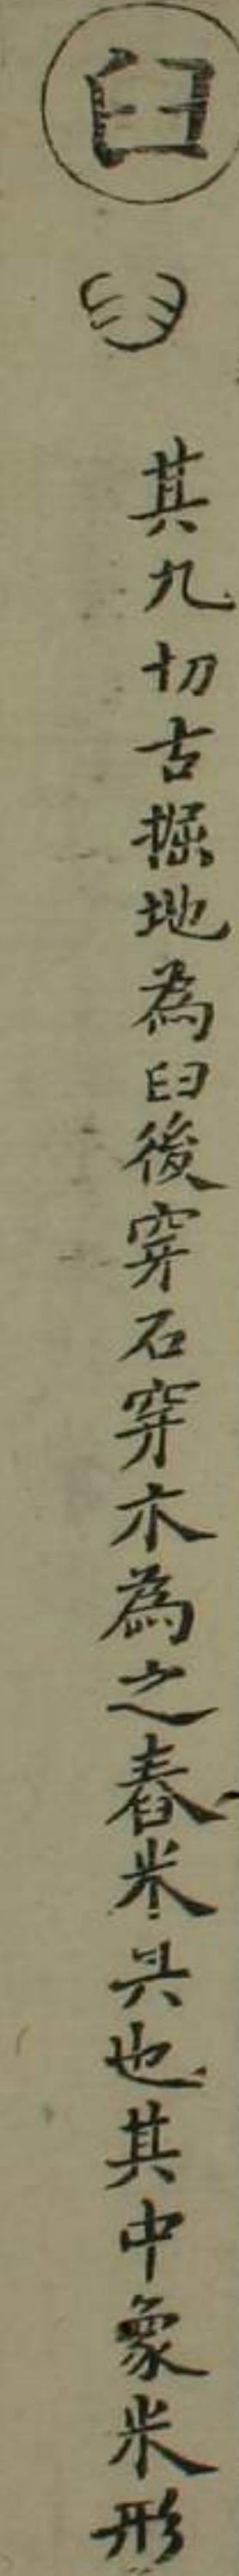 臼 其九切古掘地為臼後穿石穿木為之舂米具也其中象米形